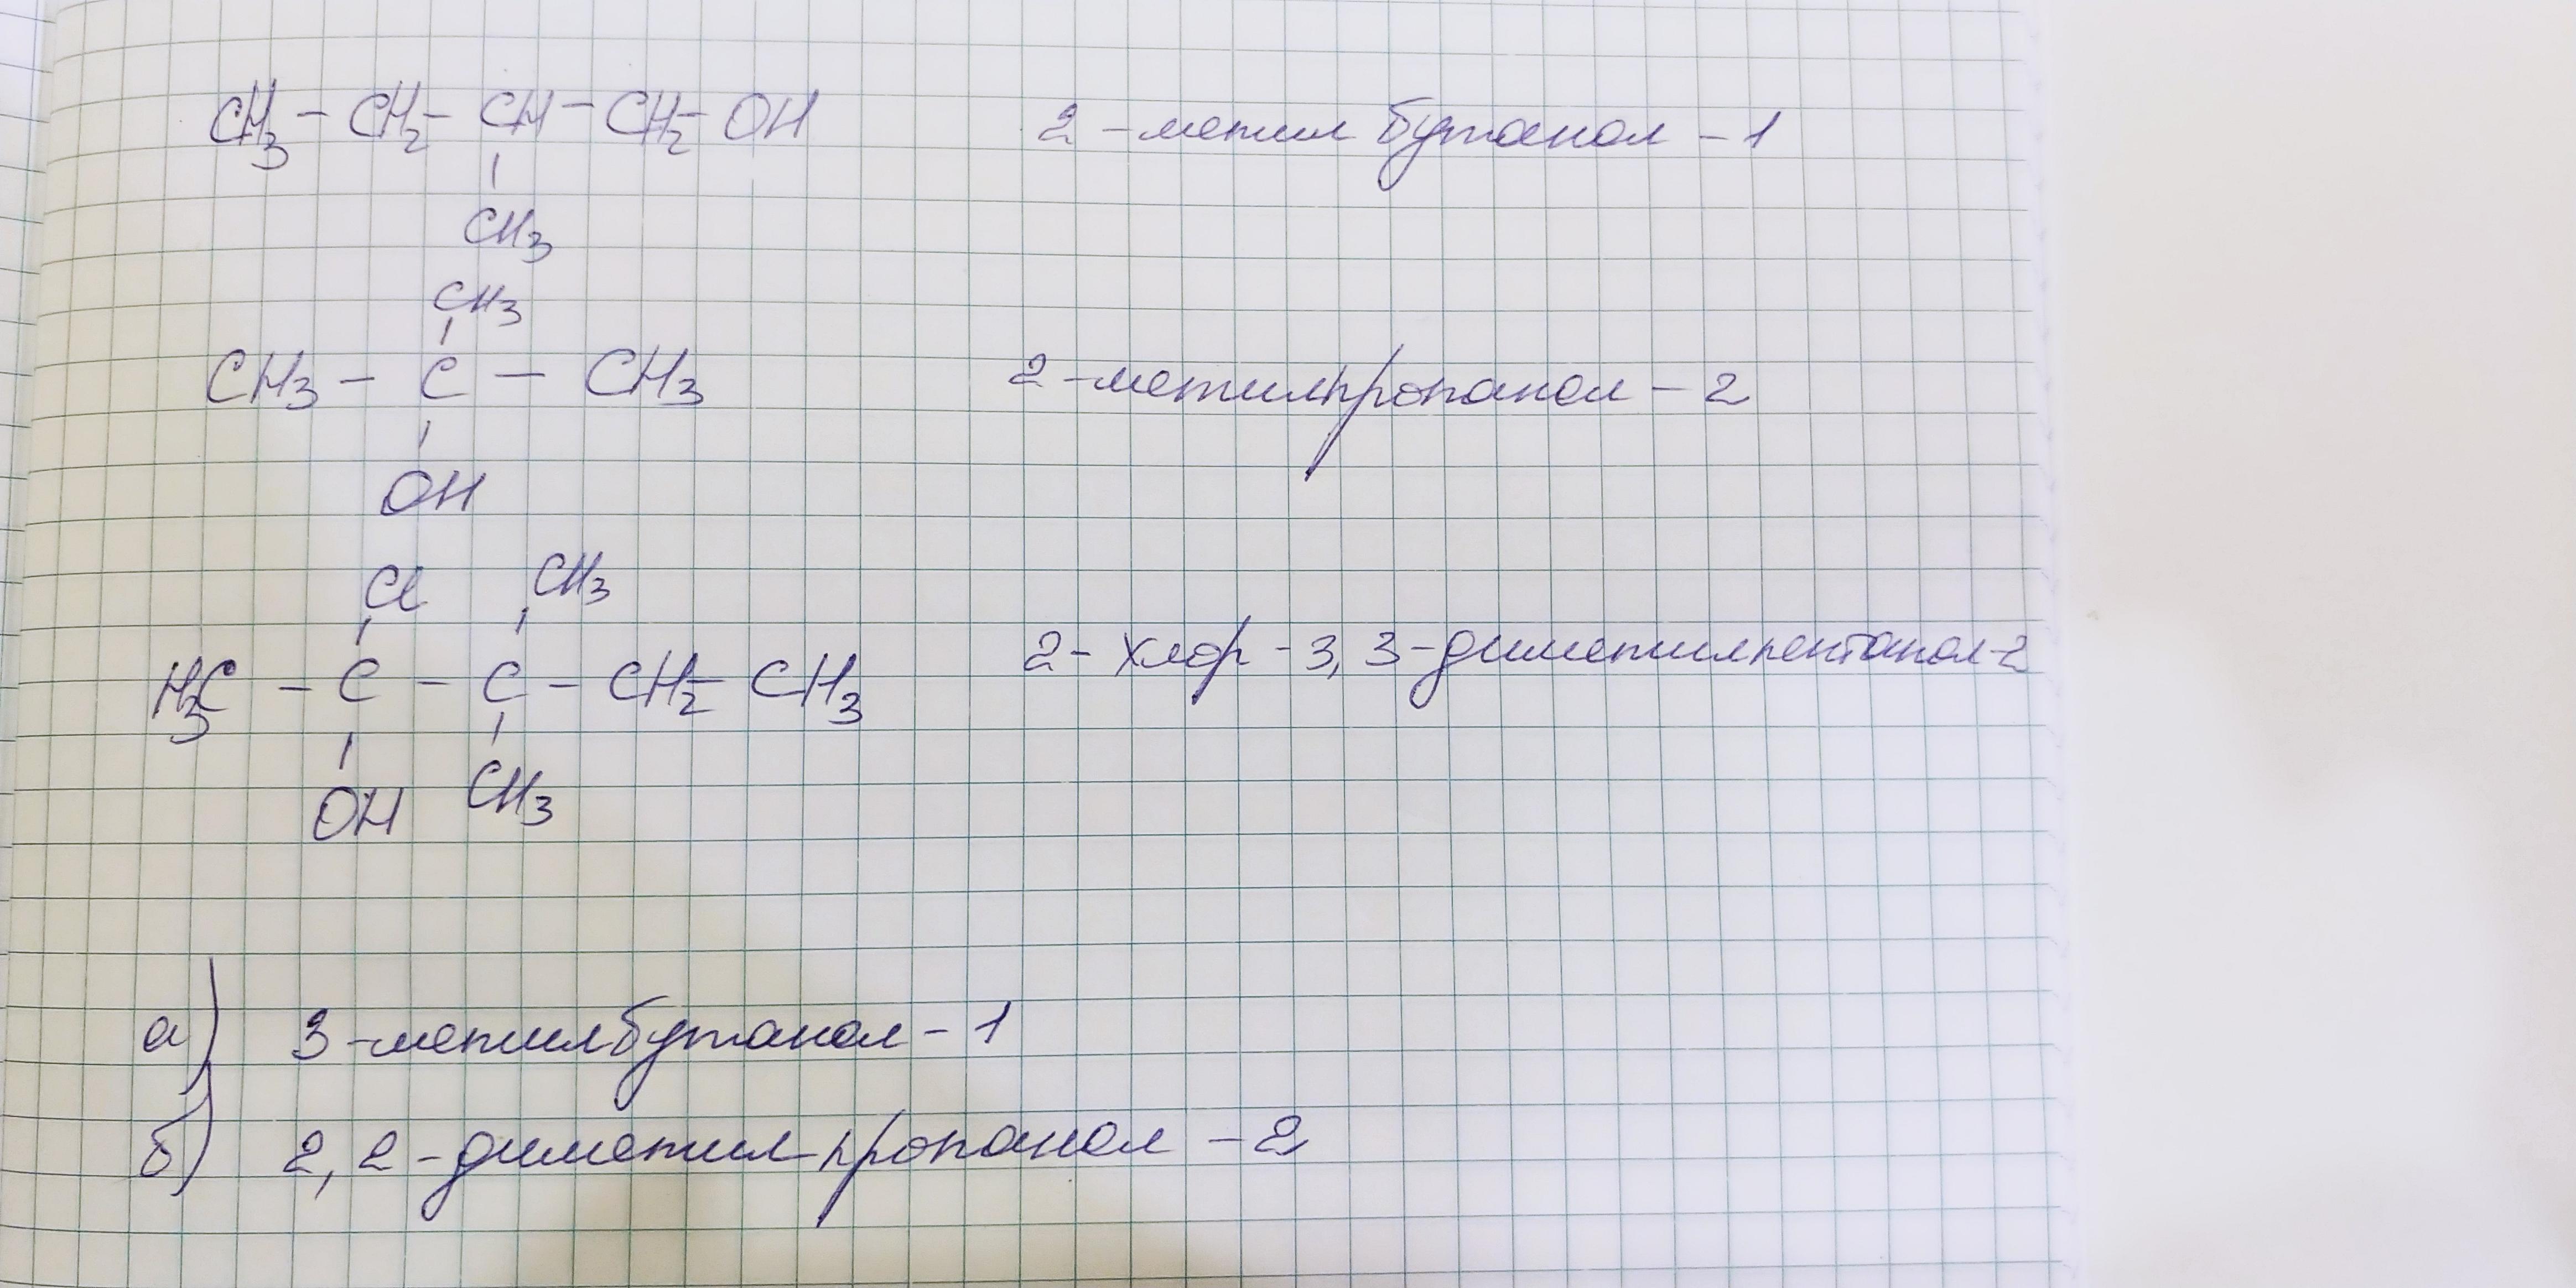 CH3 – CH2 – CH – CH2 – OH 2 – метил бутанол – 1
|
CH3
CH3
|
CH3 – C – CH3 2 – метилпропанол – 2
|
OH
Cl CH3
| |
H3C – C – C – CH2 – CH3 2 - хлор - 3, 3 - диметилпентанол-2
| |
OH CH3
а) 3 - метилбутанол - 1
б) 2, 2 - диметил пропанол - 2